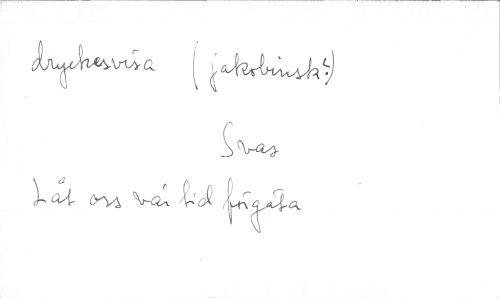 dryckesvisa (jakobinsk?)
Svas
Låt oss vår tid förgäta